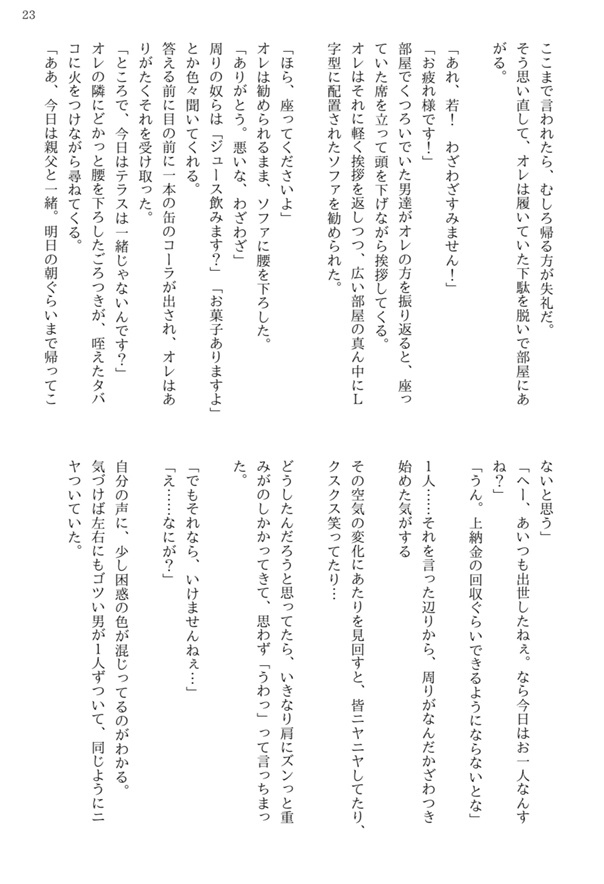 23
ここまで言われたら、むしろ帰る方が失礼だ。
そう思い直して、オレは履いていた下駄を脱いで部屋にあ
がる。
「あれ、若！　わざわざすみません！」
「お疲れ様です！」
部屋でくつろいでいた男達がオレの方を振り返ると、座っ
ていた席を立って頭を下げながら挨拶してくる。
オレはそれに軽く挨拶を返しつつ、広い部屋の真ん中にL
字型に配置されたソファを勧められた。
「ほら、座ってくださいよ」
オレは勧められるまま、ソファに腰を下ろした。
「ありがとう。悪いな、わざわざ」
周りの奴らは「ジュース飲みます？」「お菓子ありますよ」
とか色々聞いてくれる。
答える前に目の前に一本の缶のコーラが出され、オレはあ
りがたくそれを受け取った。
「ところで、今日はテラスは一緒じゃないんです？」
オレの隣にどかっと腰を下ろしたごろつきが、咥えたタバ
コに火をつけながら尋ねてくる。
「ああ、今日は親父と一緒。明日の朝ぐらいまで帰ってこ
ないと思う」
「へー、あいつも出世したねぇ。なら今日はお一人なんす
ね？」
「うん。上納金の回収ぐらいできるようにならないとな」
1人……それを言った辺りから、周りがなんだかざわつき
始めた気がする
その空気の変化にあたりを見回すと、皆ニヤニヤしてたり、
クスクス笑ってたり…
どうしたんだろうと思ってたら、いきなり肩にズンっと重
みがのしかかってきて、思わず「うわっ」って言っちまっ
た。
「でもそれなら、いけませんねぇ…」
「え……なにが？」
自分の声に、少し困惑の色が混じってるのがわかる。
気づけば左右にもゴツい男が1人ずついて、同じようにニ
ヤついていた。